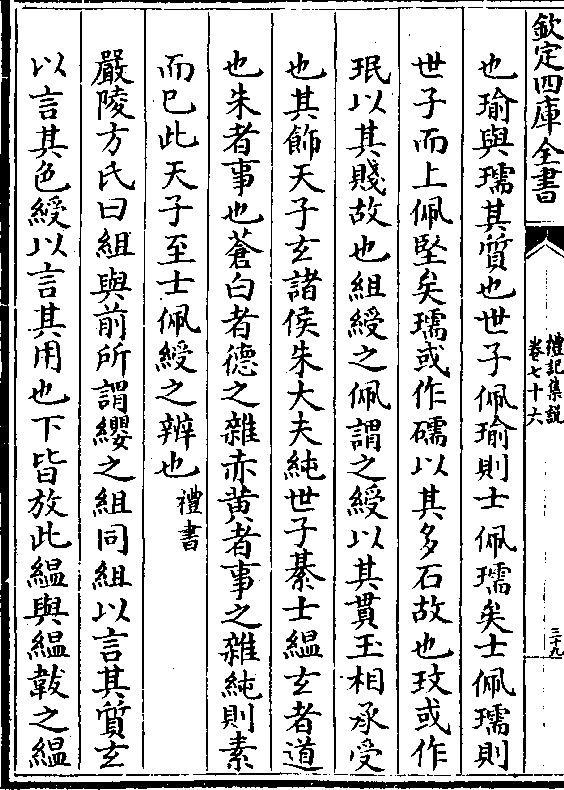 欽定四庫全書
禮記集說
卷七十六
三十九
也瑜與瓀其質也世子佩瑜則士佩瓀矣士佩瓀則
世子而上佩堅矣瓀或作礝以其多石故也玟或作
珉以其賤故也組綬之佩謂之綬以其貫玉相承受
也其飾天子玄諸侯朱大夫純世子綦士縕玄者道
也朱者事也蒼白者德之雜赤黃者事之雜純則素
而已此天子至士佩綬之辨也禮書
嚴陵方氏曰組與前所謂纓之組同組以言其質玄
以言其色綬以言其用也下皆放此縕與縕韍之縕